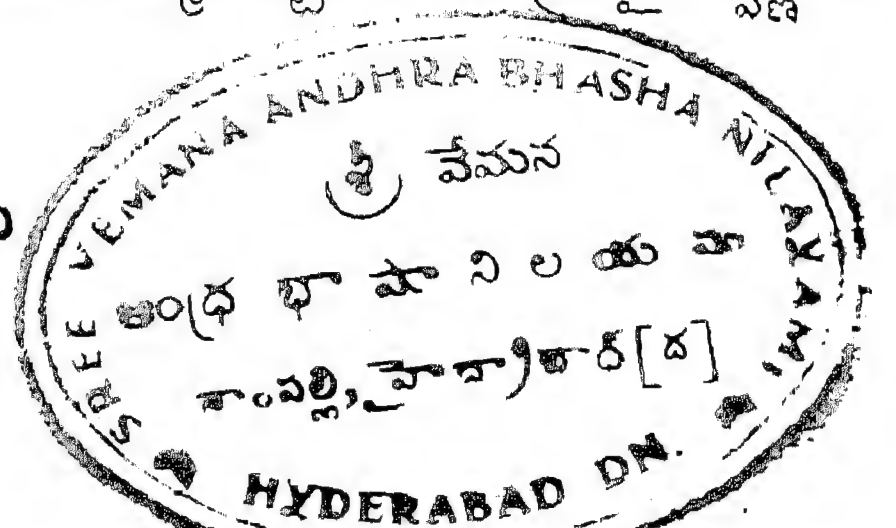 SREE VEMANA ANDHRA BHASHA NILAYAM,
శ్రీ వేమన
ఆంధ్ర భాషా నిలయము
HYDERABAD DN.